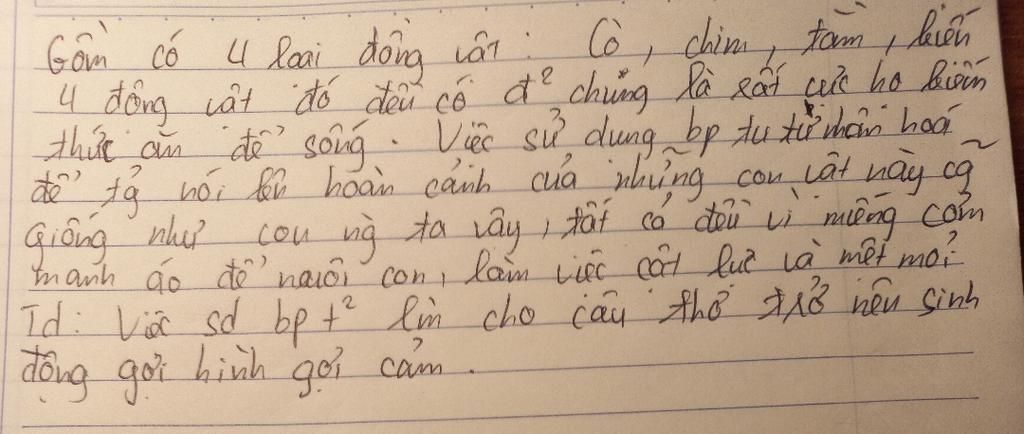 Gồm có 4 loại động vật: Cò, chim, tằm, kiến
4 động vật đó đều có đ² chung là rất cực họ kiếm
thức ăn để sống. Việc sử dụng bp tu từ nhân hoá
để tả nói lên hoàn cảnh của những con vật này cũ
giống như con ng ta vậy, tất cả đều vì miếng cơm
manh áo để nuôi con, làm việc cật lực và mệt mỏi
Td: Việc sd bp t² làm cho câu thơ trở nên sinh
động gợi hình gợi cảm.